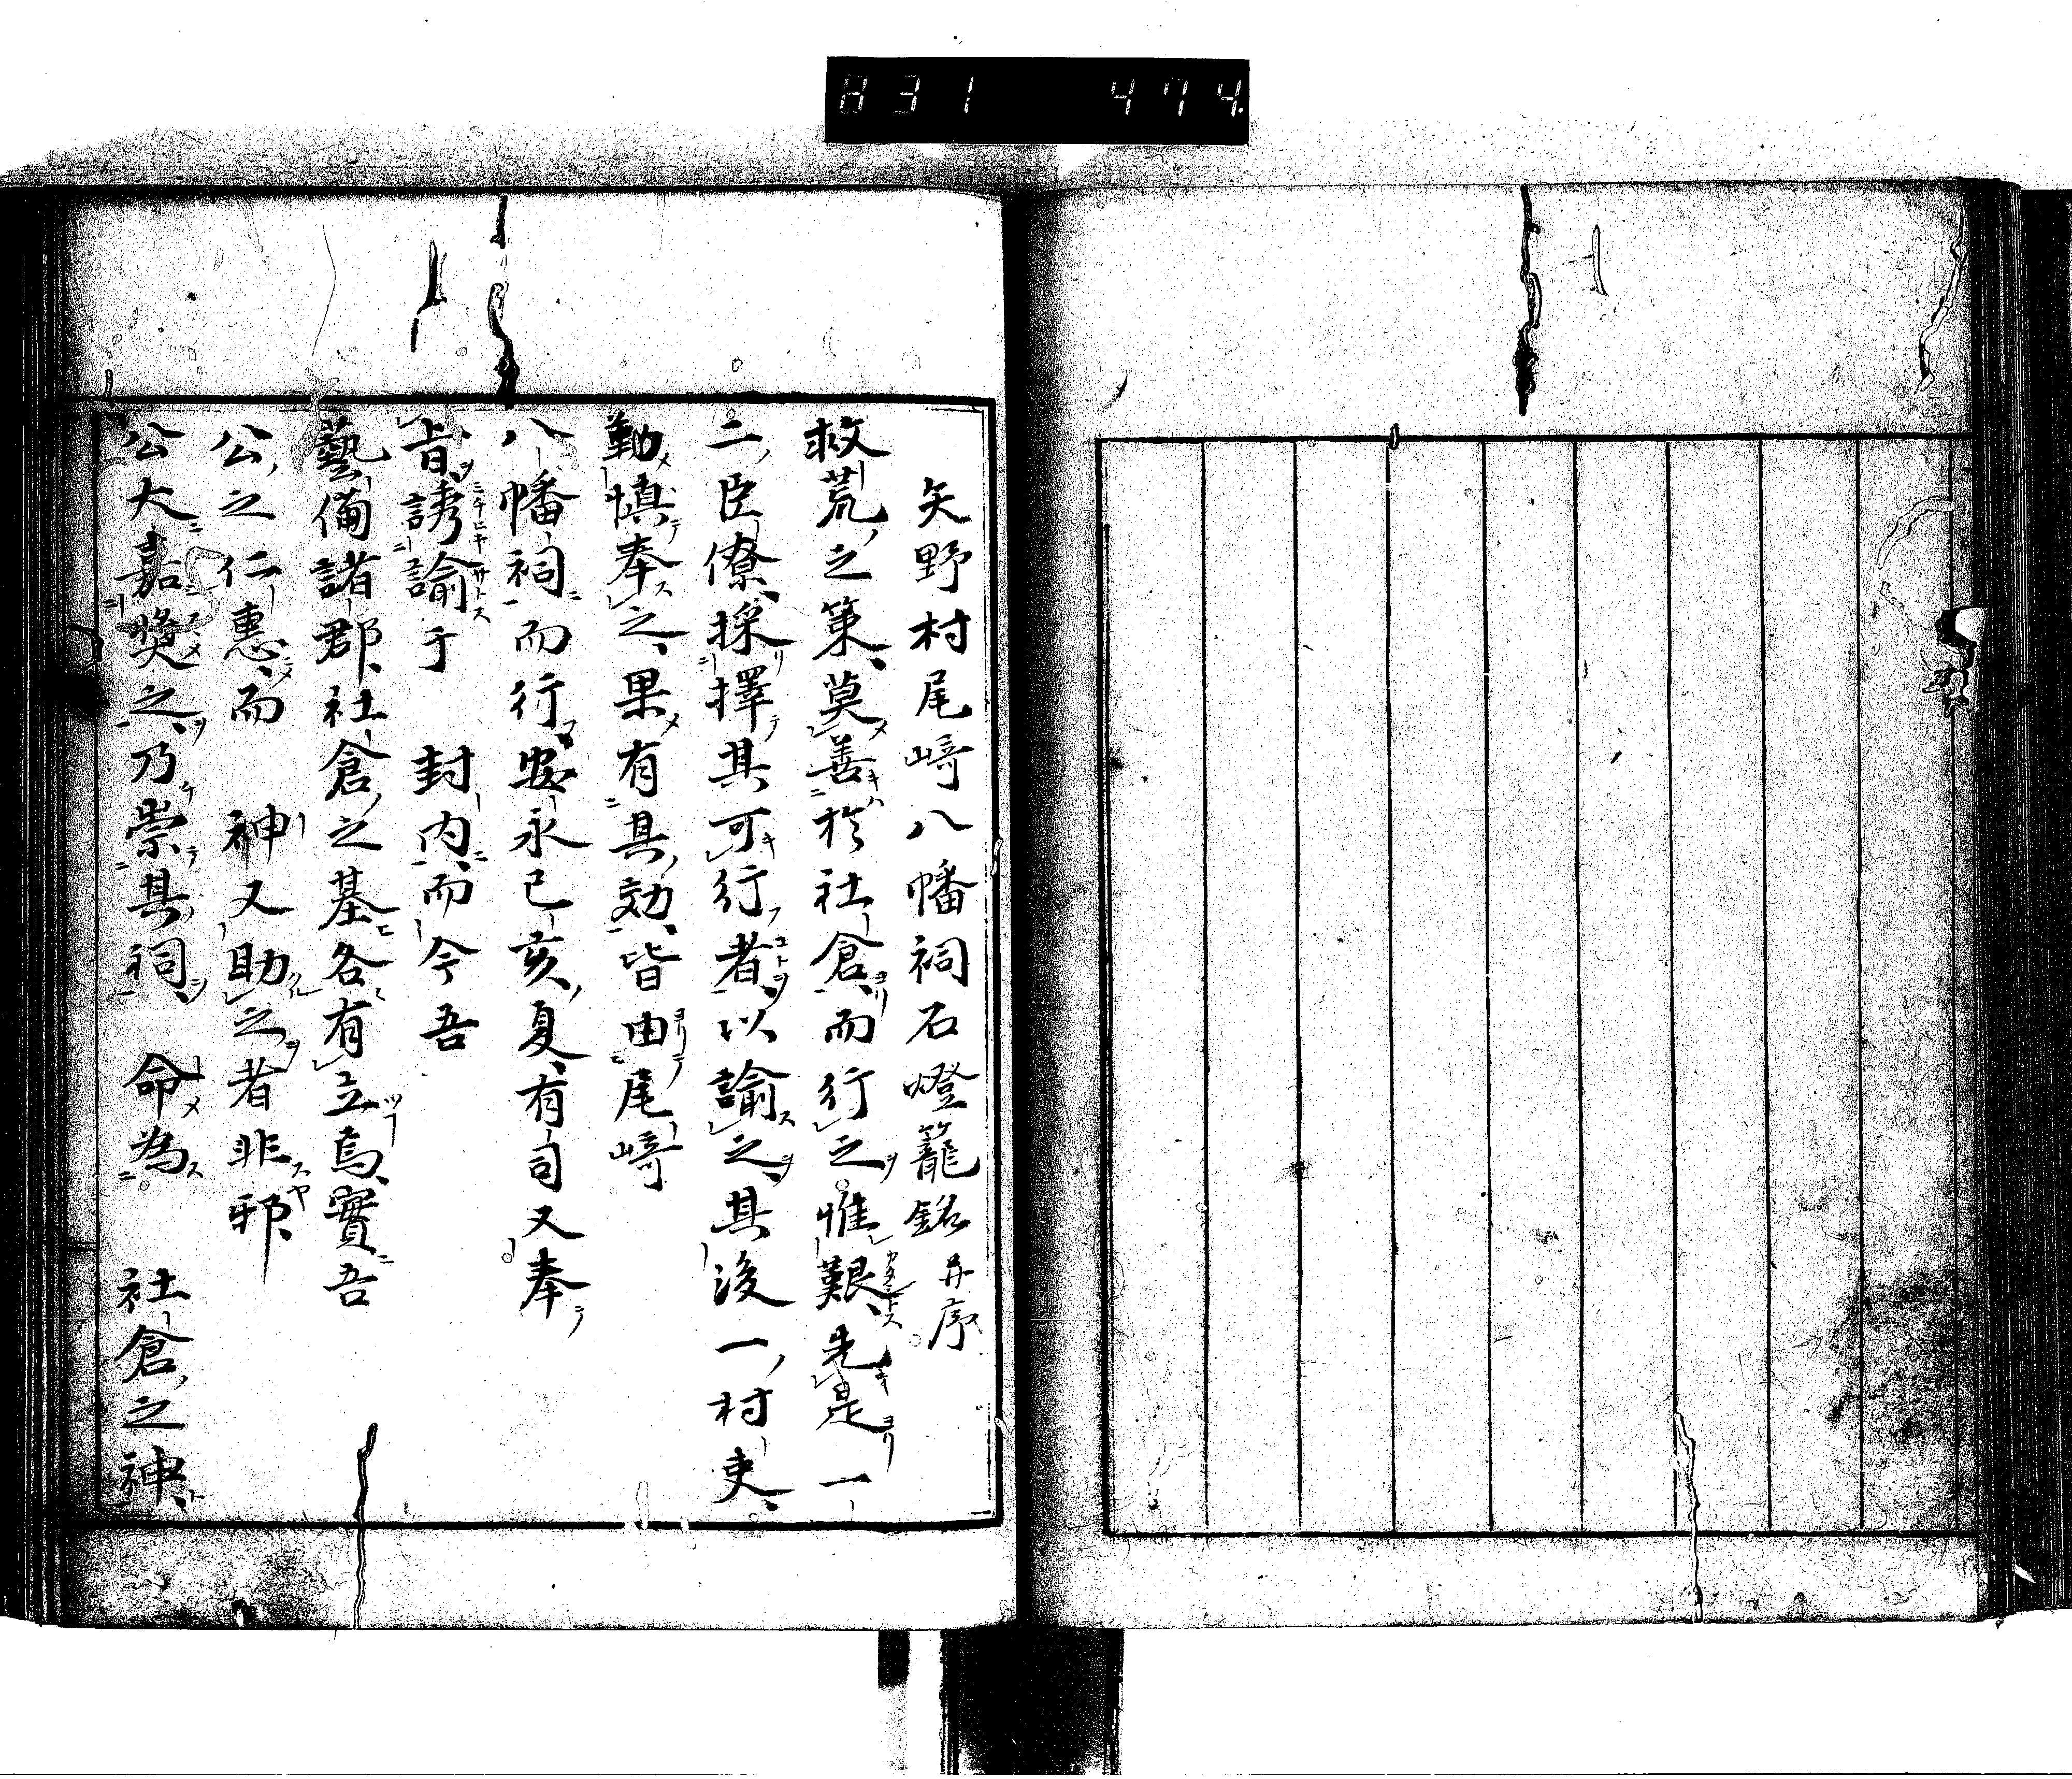 831 474
矢野村尾﨑八幡祠石燈籠銘并序
救荒之策莫善於社倉而行之惟艱先是一
二臣僚採擇其可行者以諭之其後一村吏
勤慎奉之果有其効皆由尾﨑
八幡祠而行安永己亥夏有司又奉
旨誘諭于　封内而今吾
藝備諸郡社倉之基各有立焉實吾
公之仁惠而　神又助之者非邪
公大嘉奬之乃崇其祠　命為　社倉之神